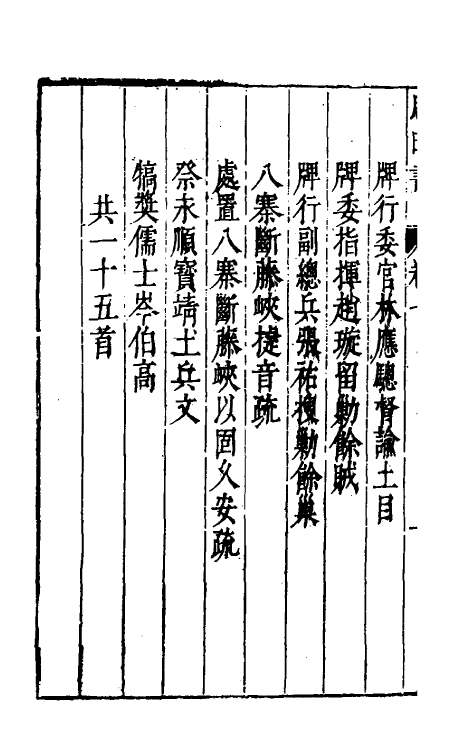 牌行委官林應驄督諭土目
牌委指揮趙璇留勦餘賊
牌行副總兵張祐搜勦餘巢
八寨斷藤峽捷音疏
處置八寨斷藤峽以圖久安疏
祭永順寶靖土兵文
犒奬儒士岑伯高
共一十五首